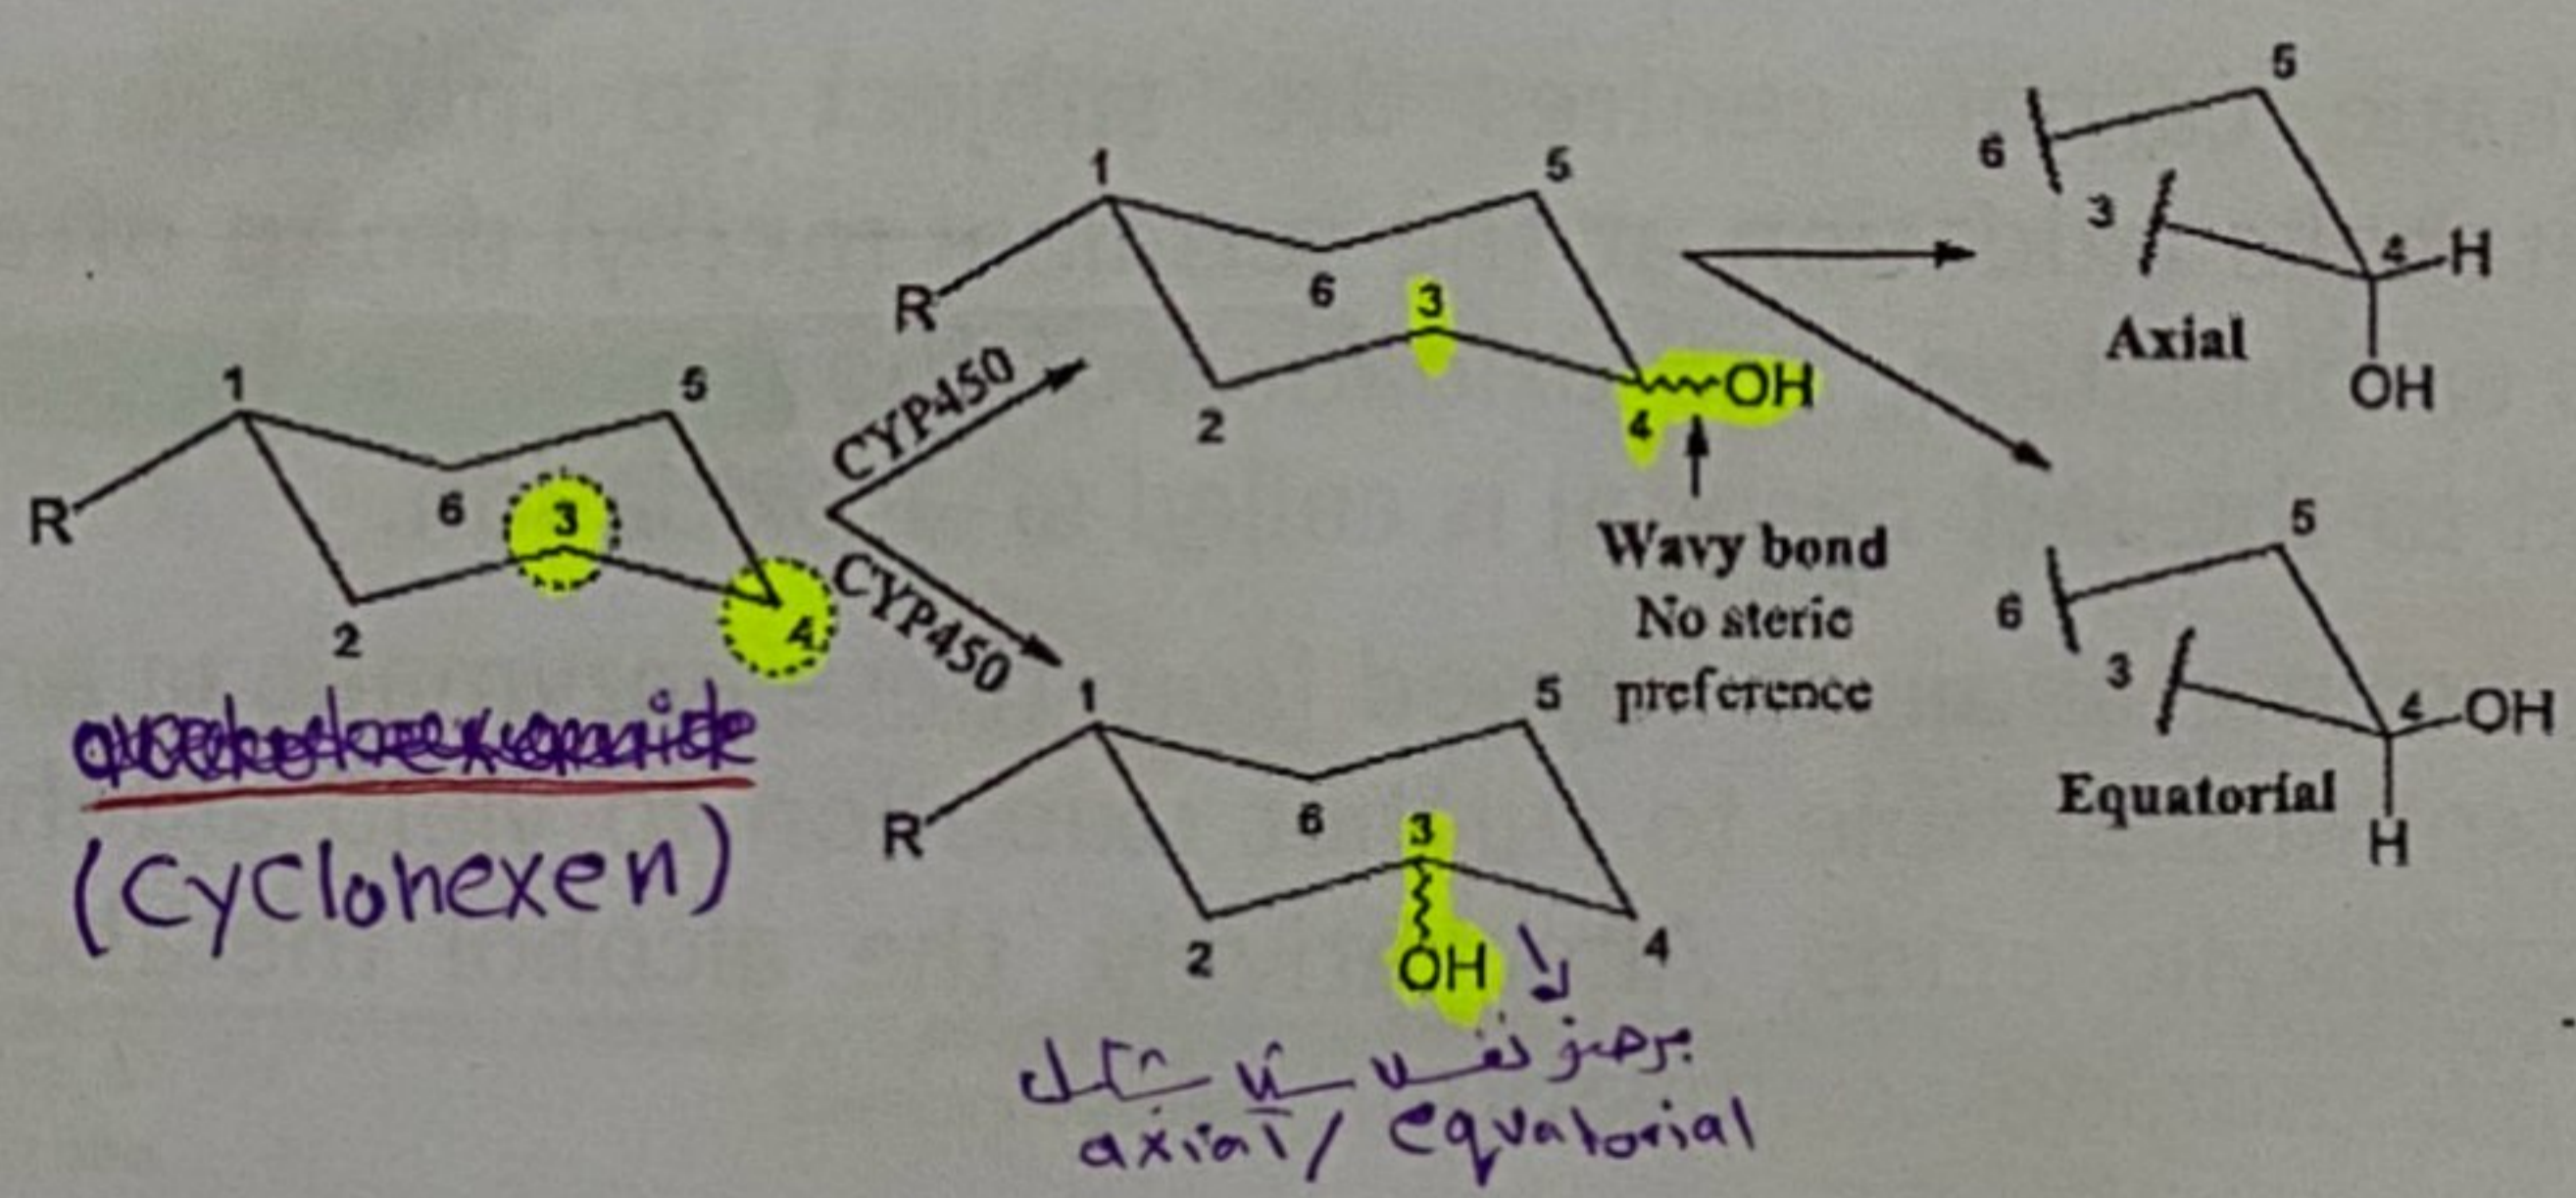 1
5
R
6
3
2
4
CYP450
CYP450
(Cyclohexen)
1
5
R
6
3
2
4
OH
Wavy bond
No steric
preference
1
5
R
6
3
2
4
OH
نفس
شكل
axial / equatorial
5
6
3
4
H
Axial
OH
5
6
3
4
OH
Equatorial
H